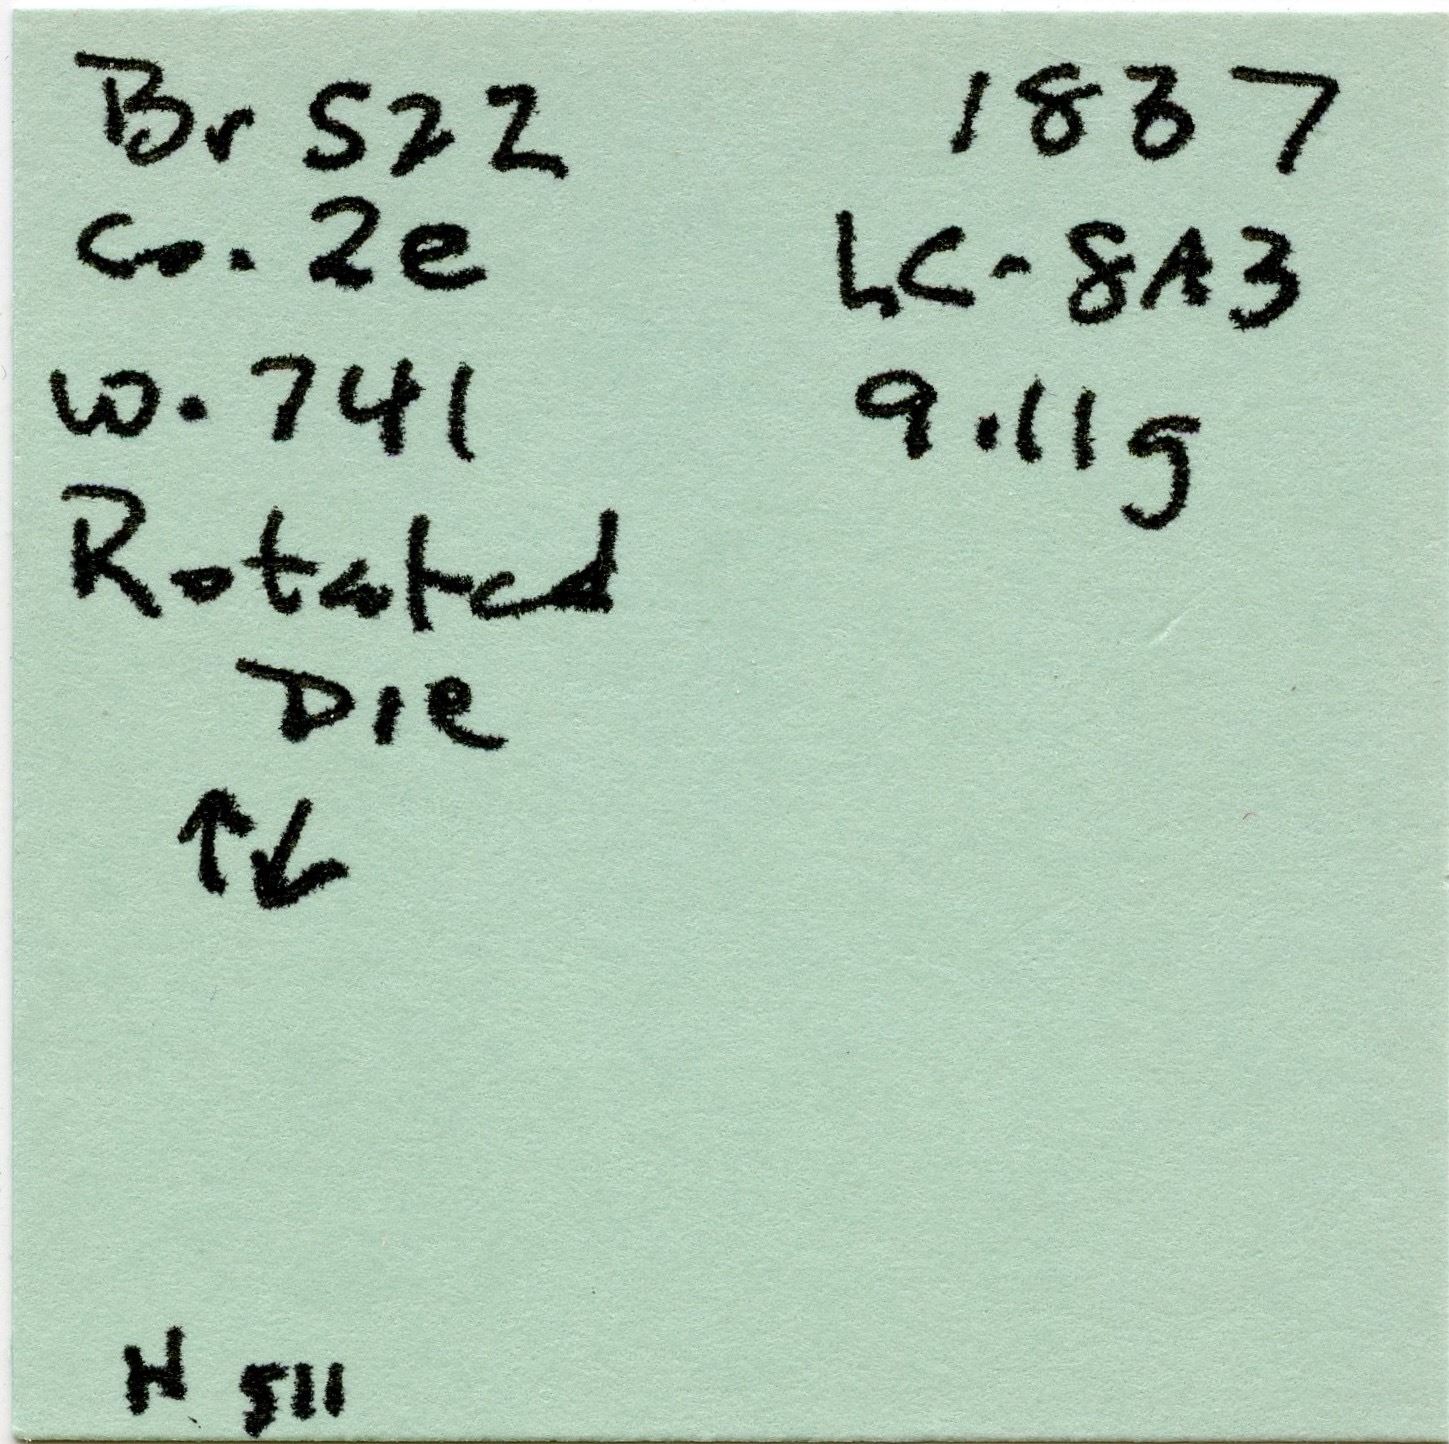 Br 522 1837
Co. 2e LC-8A3
W. 741 9.11g
Rotated
Die
↑↙
N 511